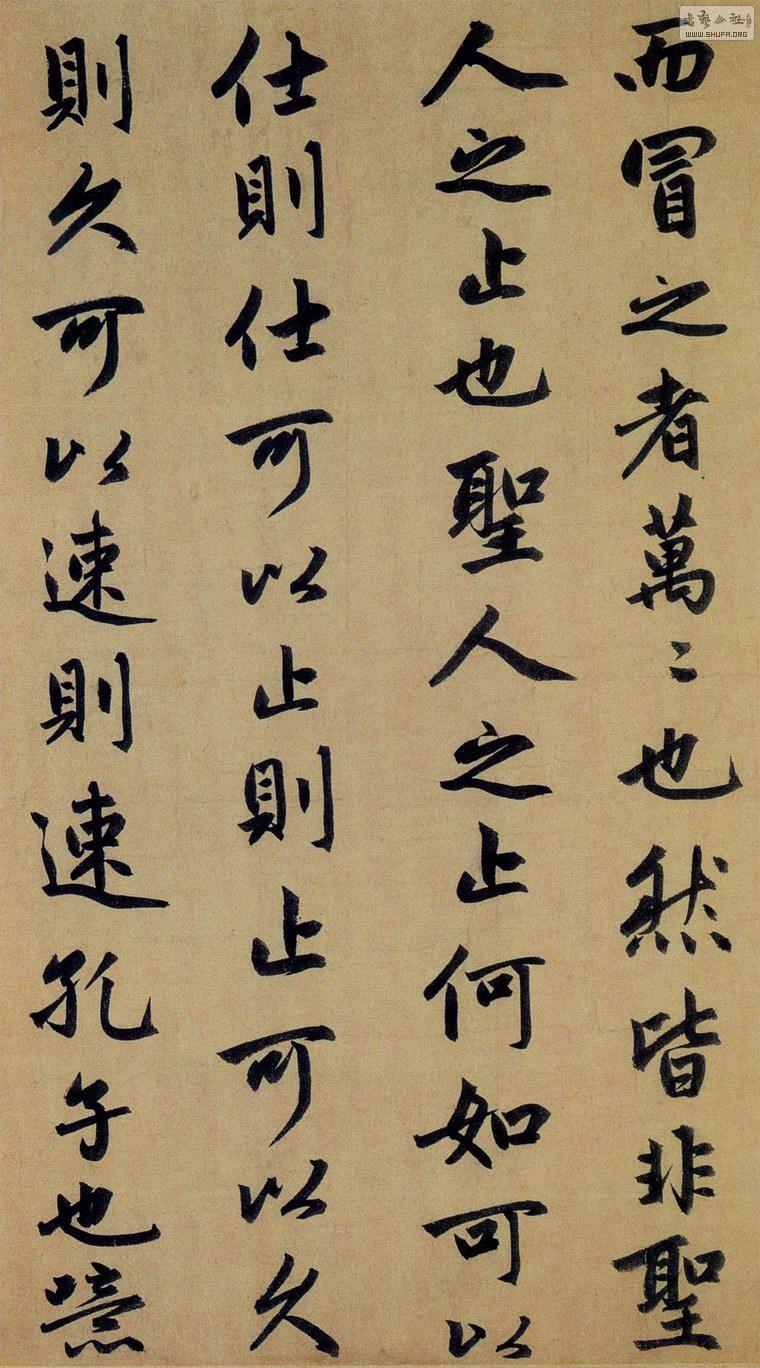 而冒之者萬〻也然皆非聖
人之止也聖人之止何如可以
仕則仕可以止則止可以久
則久可以速則速孔子也噫
書藝公社
WWW.SHUFA.ORG